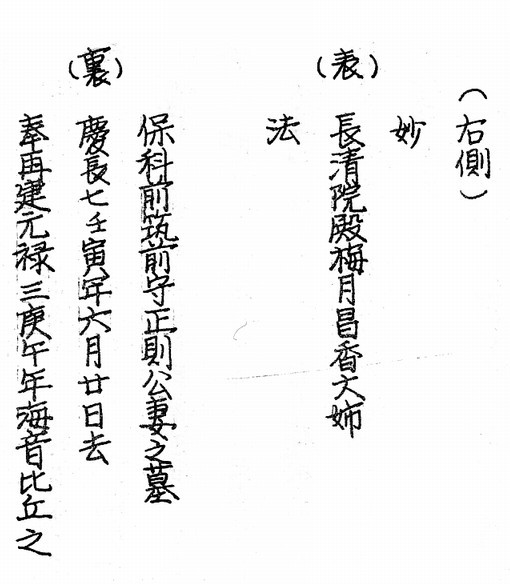 (右側)
妙
(表)
長清院殿梅月昌香大姉
法
保科前筑前守正則公妻之墓
(裏)
慶長七壬寅年六月廿日去
奉再建元禄三庚午年海音比丘之